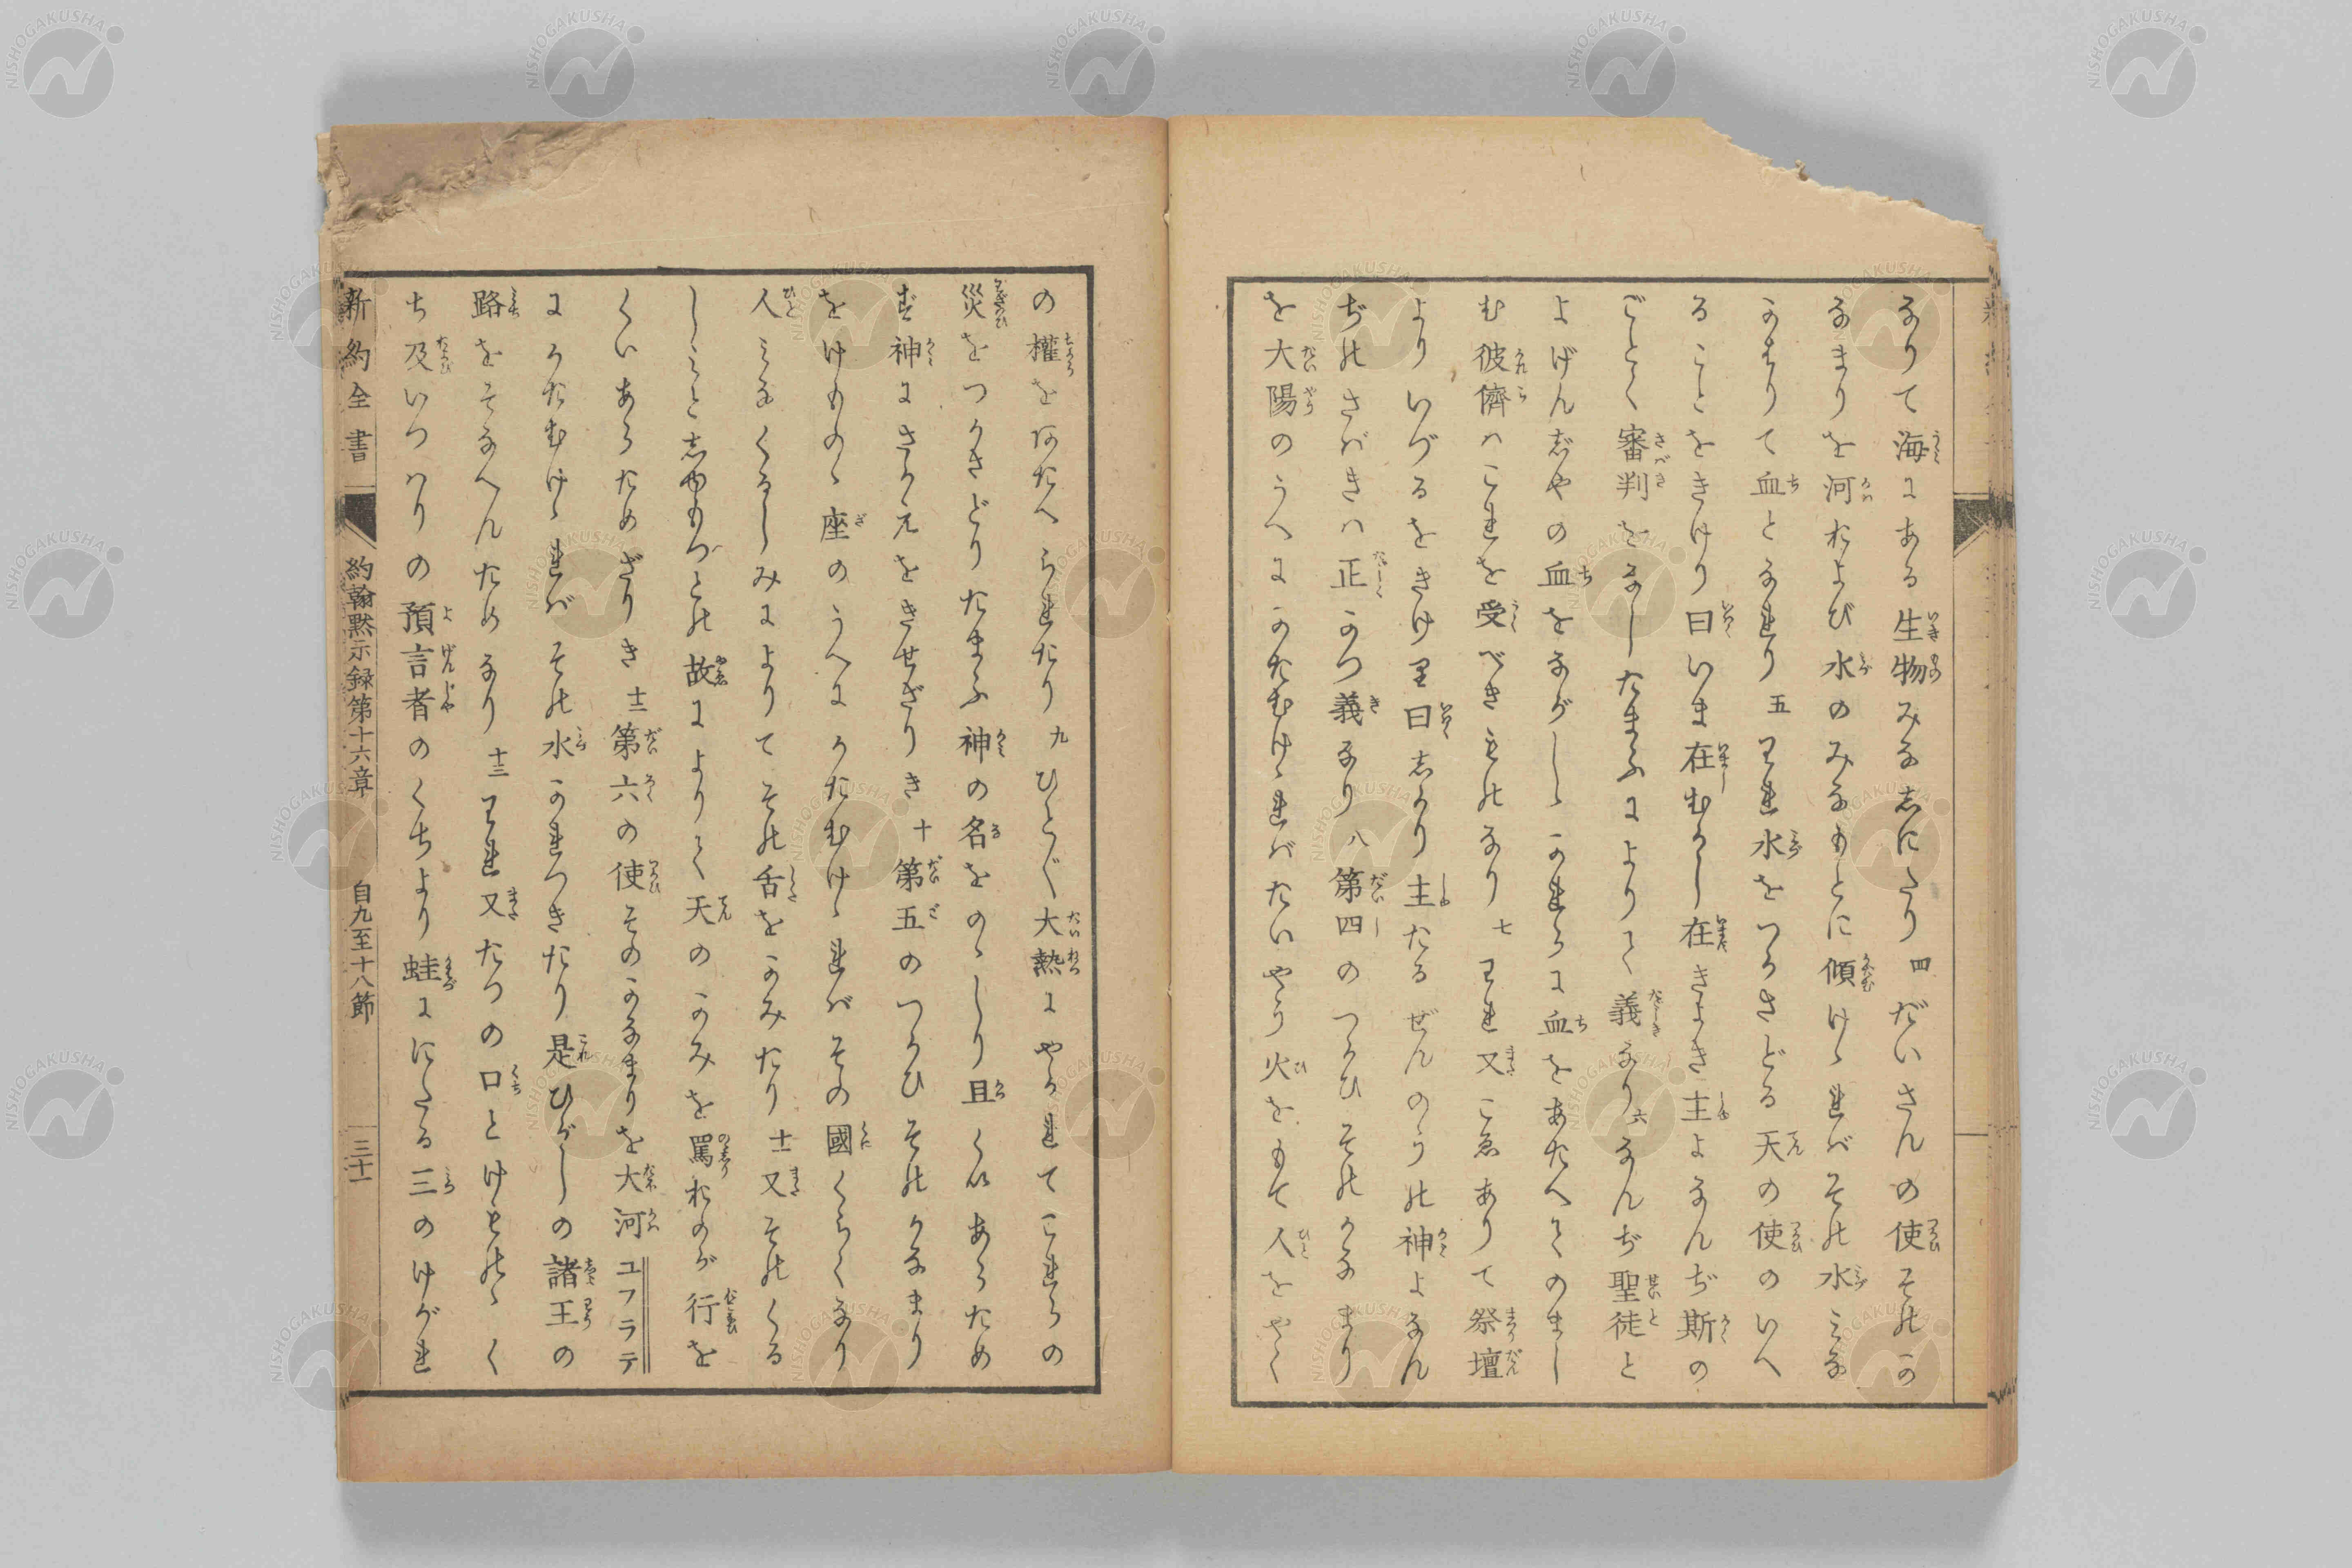 なりて海にある生物みな志にたり四だいさんの使その可
なまりを河および水のみなもとに傾けゝればその水みな
かはりて血となれり五われ水をつかさどる天の使のいへ
ることをきけり曰いま在むかし在きよき主よなんぢ斯の
ごとく審判をなしたまふによりて義なり六なんぢ聖徒と
よげん志やの血をながしゝかれらに血をあたへてのまし
む彼儕はこれを受べきものなり七われ又こゑありて祭壇
よりいづるをきけり曰志かり主たるぜんのうの神よなん
ぢのさばきは正かつ義なり八第四のつかひそのかなまり
を大陽のうへにかたむけゝればたいやう火をもて人をやく
の權をあたへられたり九ひと〴〵大熱にやかれてこれらの
災をつかさどりたまふ神の名をのゝしり且くいあらため
ず神にさかえをきせざりき十第五のつかひそのかなまり
をけものゝ座のうへにかたむけゝればその國くらくなり
人みなくるしみによりてその舌をかみたり十一又そのくる
しみと志ゆもつとの故によりて天のかみを罵おのが行を
くいあらためざりき十二第六の使そのかなまりを大河ユフラテ
にかたむけゝればその水かれつきたり是ひがしの諸王の
路をそなへんためなり十三われ又たつの口とけものゝく
ち及いつはりの預言者のくちより蛙ににたる三のけがれ
新約全書 約翰黙示録第十六章 自九至十八節 三十一
NISHOGAKUSHA